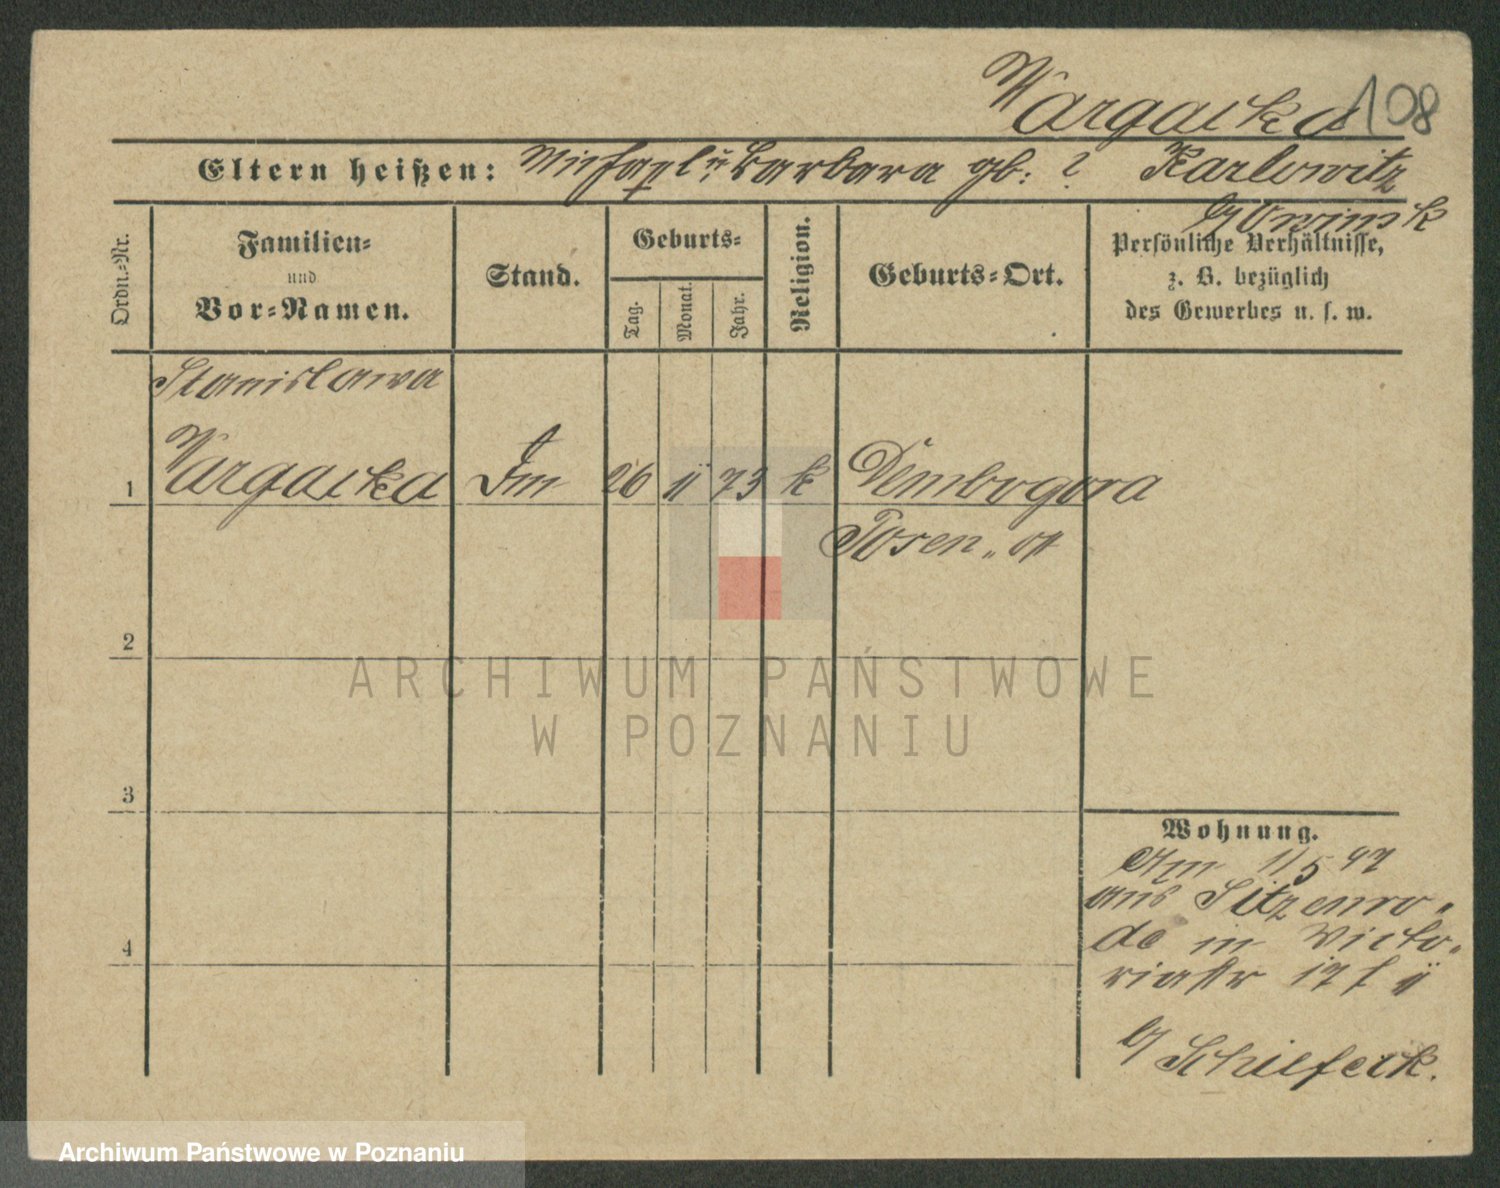 Wargacka 108
Eltern heißen: Michael u. Barbara gb: ? Karlowitz
b/ Owinsk
Ordn.-Nr.
Familien-
und
Vor-Namen.
Stand.
Geburts-
Tag.
Monat.
Jahr.
Religion.
Geburts-Ort.
Persönliche Verhältnisse,
z. B. bezüglich
des Gewerbes u. s. w.
Stanislawa
1 Wargacka 26 11 73 k Dembogora
Posen, ost
2
3
4
Wohnung.
Am 1/5 97
aus Sitzenro-
de in Victo-
riastr 17
b/ Schiefeck.
ARCHIWUM PAŃSTWOWE
W POZNANIU
Archiwum Państwowe w Poznaniu